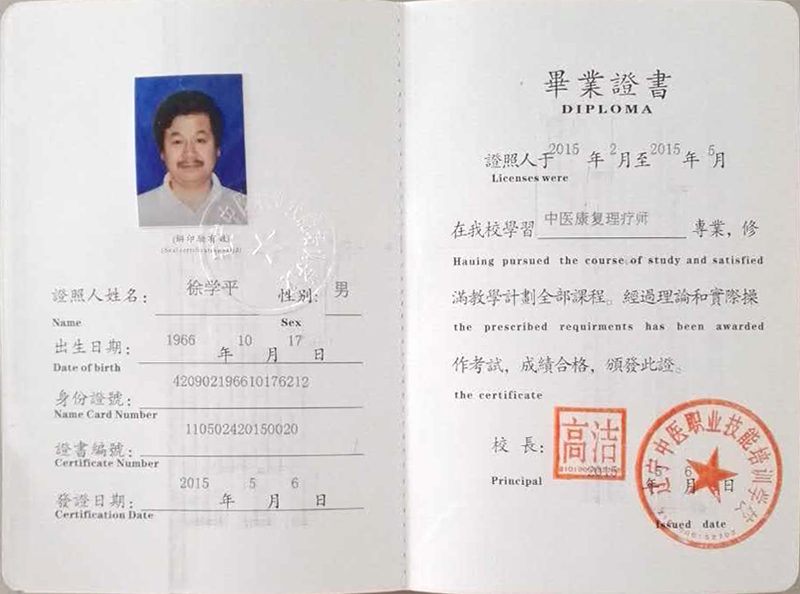 (鋼印驗有效)
證照人姓名：徐学平 性别：男
Name Sex
出生日期：1966 年 10 月 17 日
Date of birth
身份證號：420902196610176212
Name Card Number
證書編號：110502420150020
Certificate Number
發證日期：2015 年 5 月 6 日
Certification Date
畢業證書
DIPLOMA
證照人于2015 年 2月至2015年 5月
Licenses were
在我校學習 中医康复理疗师 專業，修
Hauing pursued the course of study and satisfied
滿教學計劃全部課程。經過理論和實際操
the prescribed requirments has been awarded
作考試，成績合格，頒發此證。
the certificate
校長：高洁
Principal 2015 年 5 月 6 日
辽宁中医职业技能培训学校
Issued date